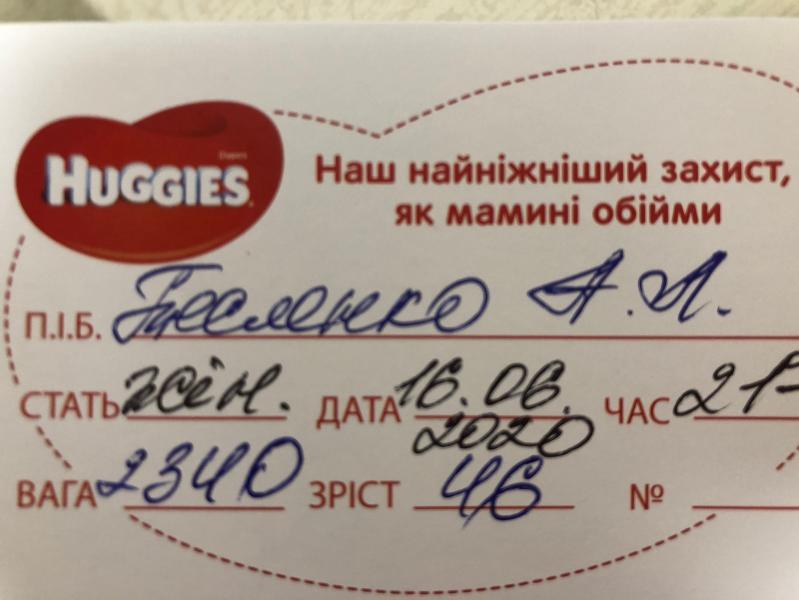 HUGGIES
Наш найніжніший захист,
як мамині обійми
П.І.Б. Тесленко А.Л.
СТАТЬ жін. ДАТА 16.06. ЧАС 21-
2020
ВАГА 2340 ЗРІСТ 46 №